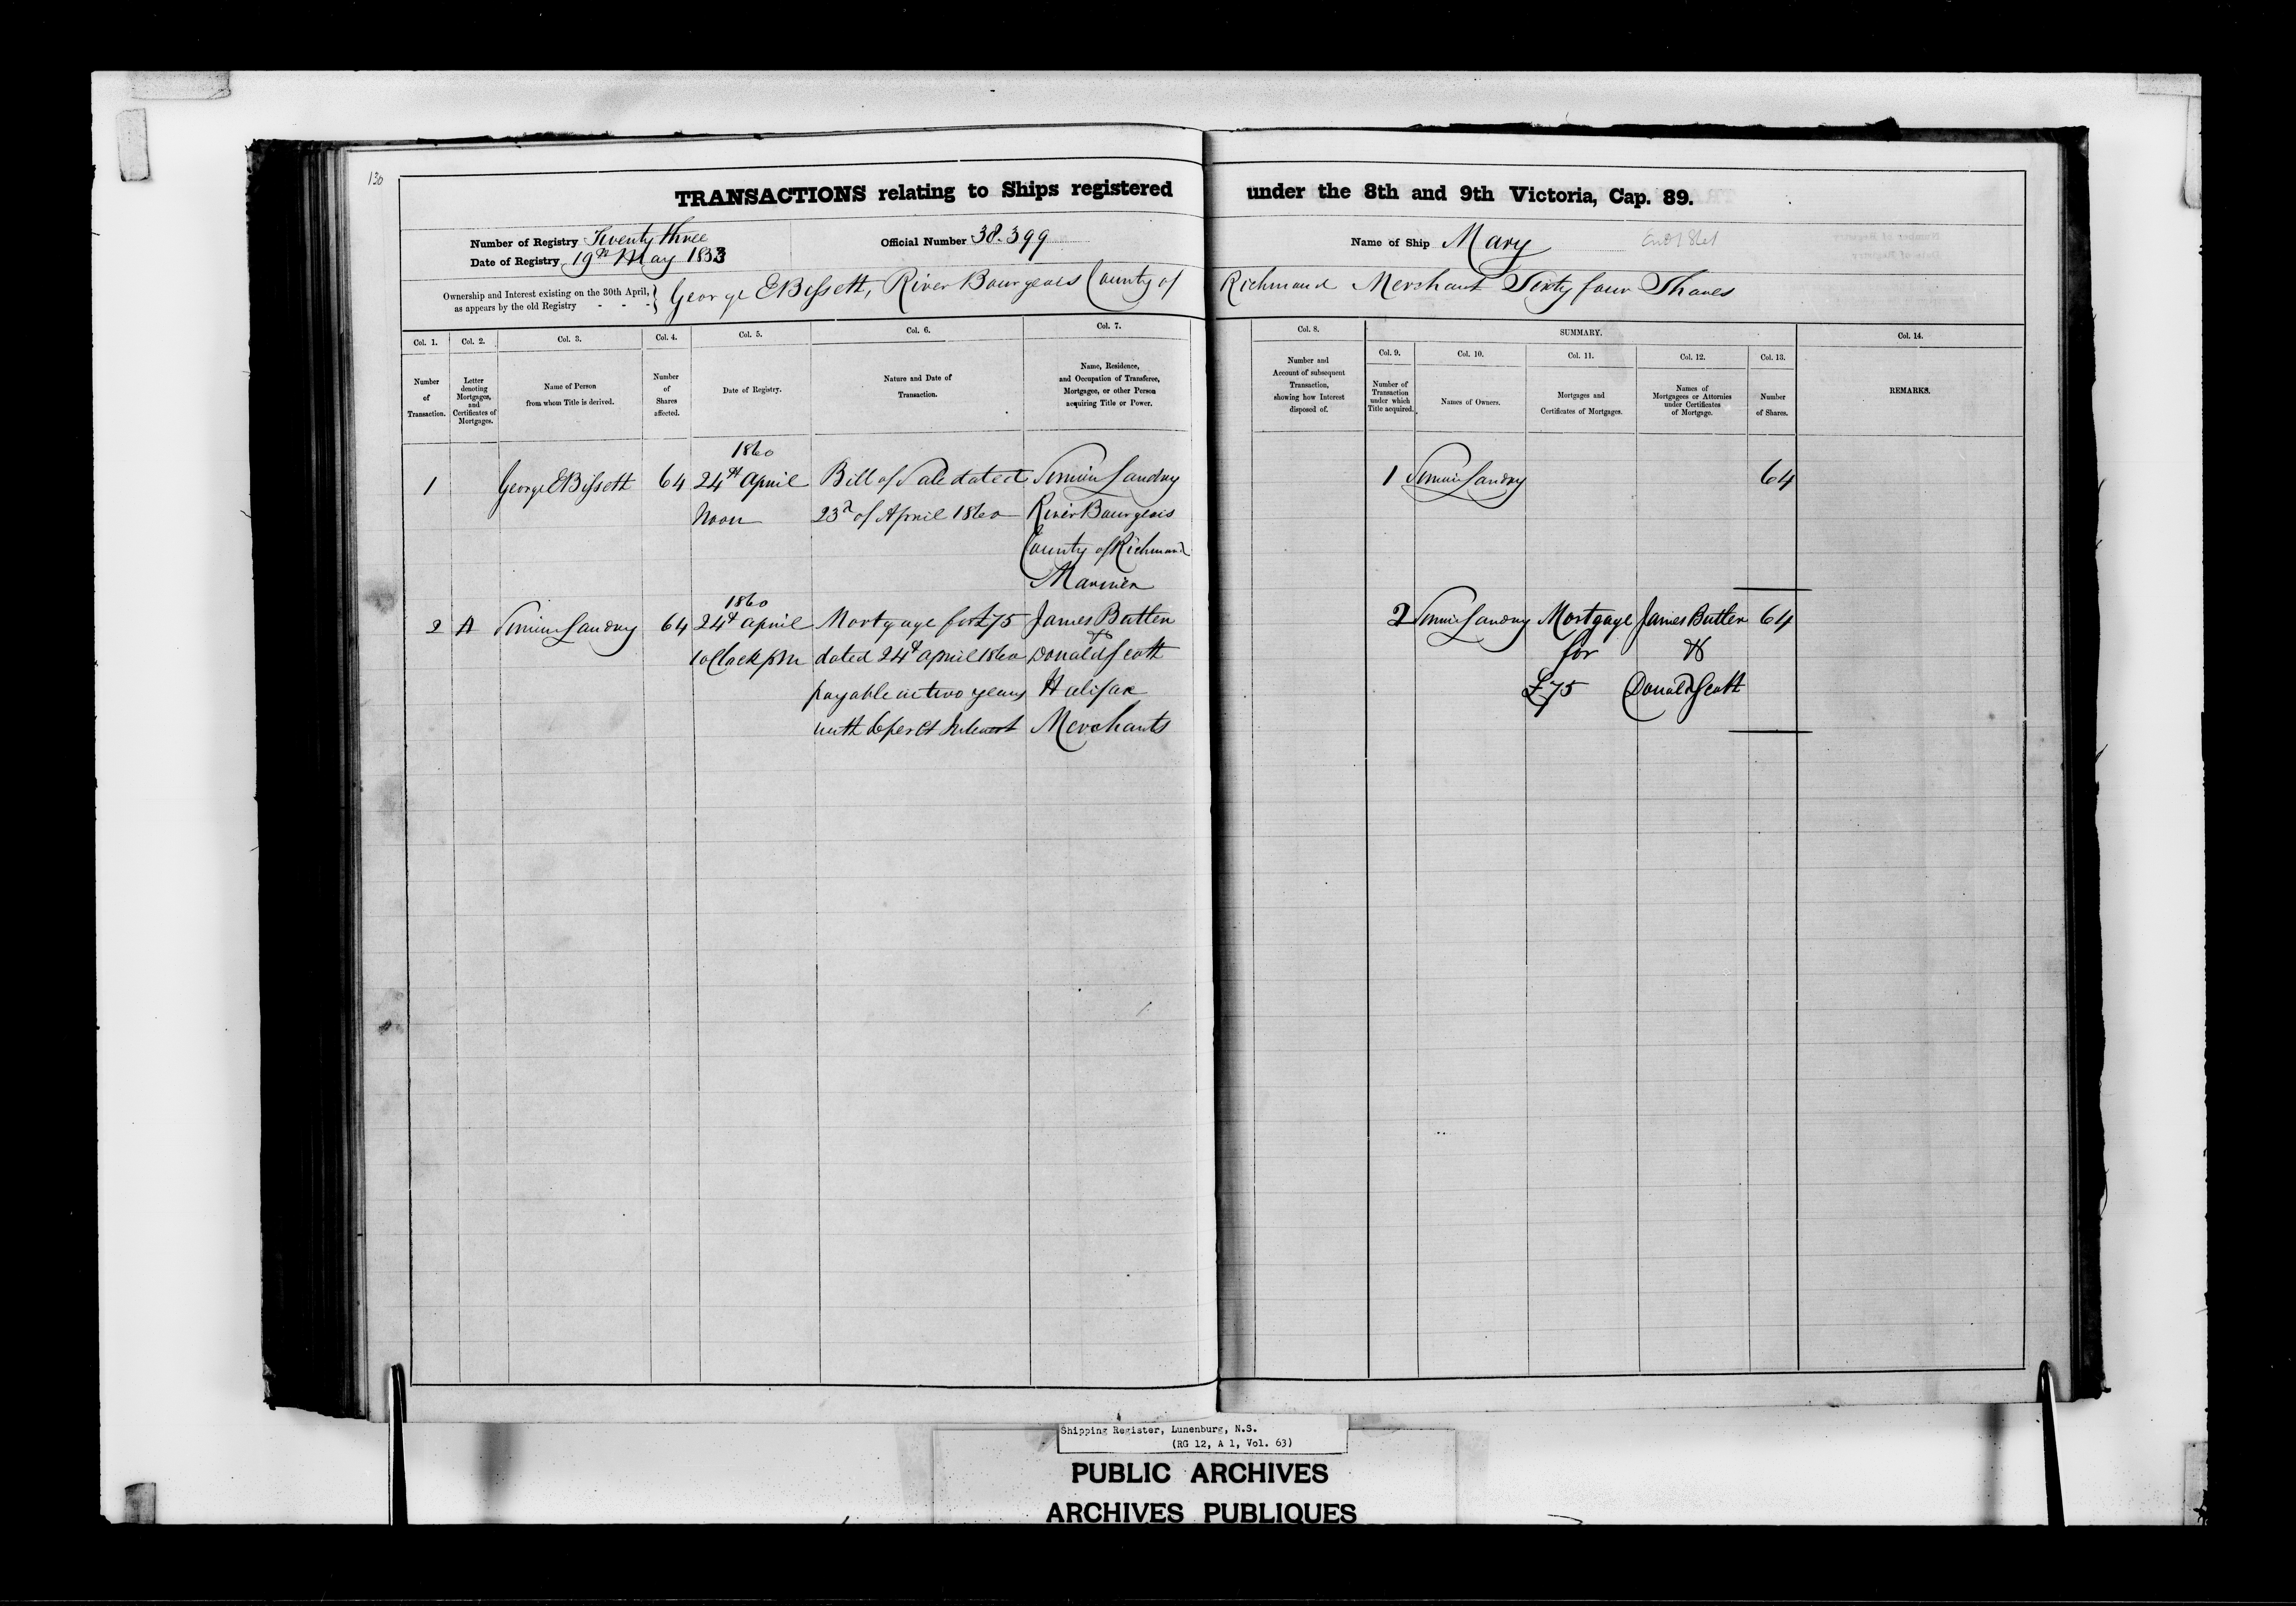 130
TRANSACTIONS relating to Ships registered under the 8th and 9th Victoria, Cap. 89.
Number of Registry Seventy three
Official Number 38.399
Name of Ship Mary
Date of Registry 19th May 1853
Ownership and Interest existing on the 30th April, as appears by the old Registry - - - } George E Bissett, River Bourgeois County of Richmond Merchant Sixty four Shares
Col. 1. Col. 2. Col. 3. Col. 4. Col. 5. Col. 6. Col. 7. Col. 8. SUMMARY. Col. 14.
Col. 9. Col. 10. Col. 11. Col. 12. Col. 13.
Number of Transaction.
Letter denoting Mortgages, and Certificates of Mortgages.
Name of Person from whom Title is derived.
Number of Shares affected.
Date of Registry.
Nature and Date of Transaction.
Name, Residence, and Occupation of Transferee, Mortgagee, or other Person acquiring Title or Power.
Number and Account of subsequent Transaction, showing how Interest disposed of.
Number of Transaction under which Title acquired.
Names of Owners.
Mortgages and Certificates of Mortgages.
Names of Mortgagees or Attornies under Certificates of Mortgage.
Number of Shares.
REMARKS.
1860
1 George E Bissett 64 24th April Bill of Sale dated Landry 1 Landry 64
Noon 23d of April 1860 River Bourgeois
County of Richmond
Mariner
1860
2 A Landry 64 24th April Mortgage for £75 James Butler 2 Landry Mortgage James Butler 64
1 oClock pm dated 24th April 1860 & Donald Scott for &
payable in two years Halifax £75 Donald Scott
with 6 per Ct Interest Merchants
Shipping Register, Lunenburg, N.S.
(RG 12, A 1, Vol. 63)
PUBLIC ARCHIVES
ARCHIVES PUBLIQUES